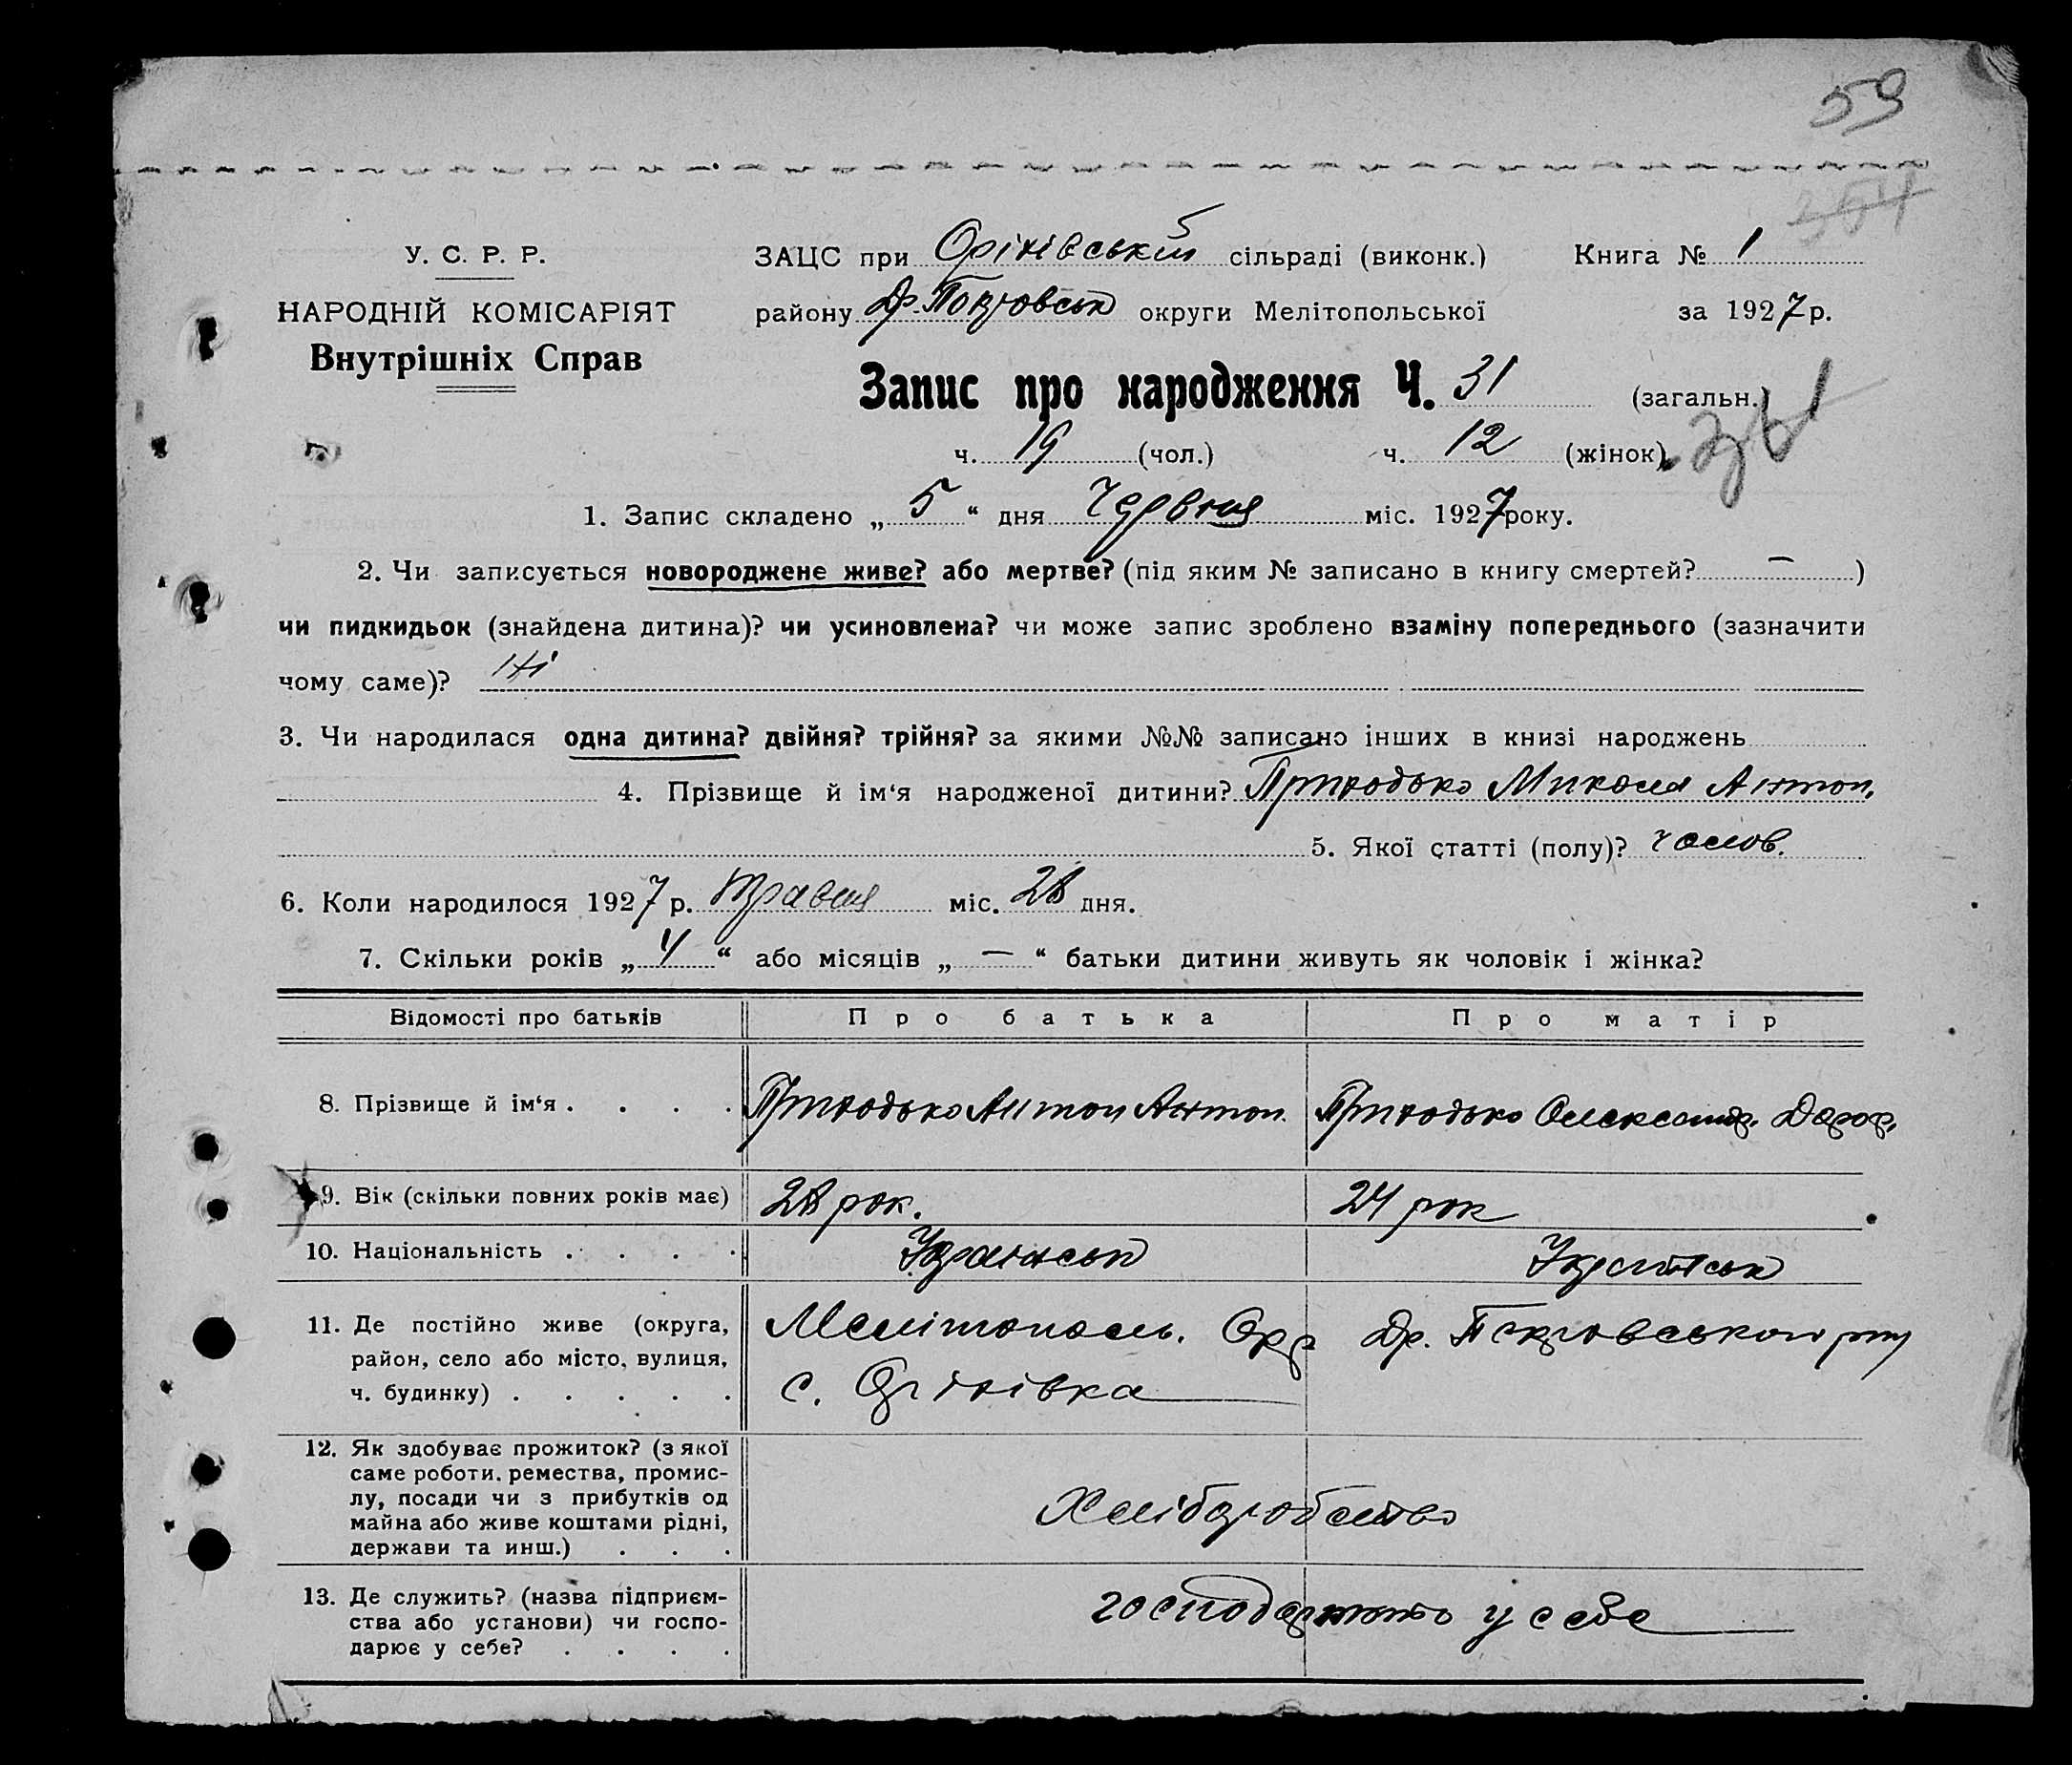 59
У. С. Р. Р.
НАРОДНІЙ КОМІСАРІЯТ
Внутрішніх Справ
ЗАЦС при Орінівській сільраді (виконк.) Книга № 1
району Др.-Покровськ округи Мелітопольської за 1927 р.
Запис про народження Ч. 31 (загальн.)
ч. 19 (чол.) ч. 12 (жінок)
1. Запис складено „ 5 “ дня Червня міс. 1927 року.
2. Чи записується новороджене живе? або мертве? (під яким № записано в книгу смертей? — )
чи пидкидьок (знайдена дитина)? чи усиновлена? чи може запис зроблено взаміну попереднього (зазначити
чому саме)? Ні
3. Чи народилася одна дитина? двійня? трійня? за якими №№ записано інших в книзі народжень
4. Прізвище й ім‘я народженої дитини? Приходько Микола Антон.
5. Якої статті (полу)? чолов.
6. Коли народилося 1927 р. травня міс. 28 дня.
7. Скільки років „ 4 “ або місяців „ — “ батьки дитини живуть як чоловік і жінка?
Відомості про батьків Про батька Про матір
8. Прізвище й ім‘я . . . . Приходько Антон Антон. Приходько Олександр.
9. Вік (скільки повних років має) 28 рок. 24 рок
10. Національність . . . . Українськ Українськ
11. Де постійно живе (округа,
район, село або місто, вулиця,
ч. будинку) . . . . .
Мелітополь. Окр Др. Покровського р-ну
с. Орінівка
12. Як здобуває прожиток? (з якої
саме роботи. ремества, промис-
лу, посади чи з прибутків од
майна або живе коштами рідні,
держави та инш.) . . .
Хліборобство
13. Де служить? (назва підприєм-
ства або установи) чи госпо-
дарює у себе? . . . .
господарство у себе